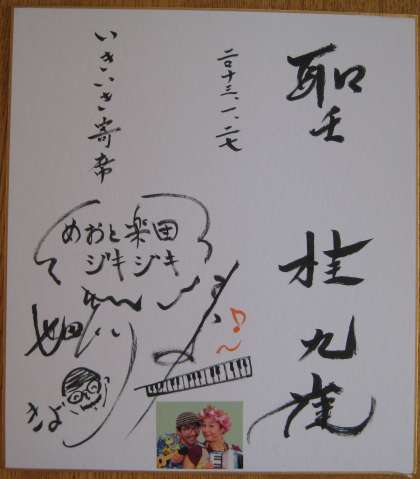 聖 桂九雀
二〇十三、一、二七
いきいき寄席
めおと楽団
ジキジキ